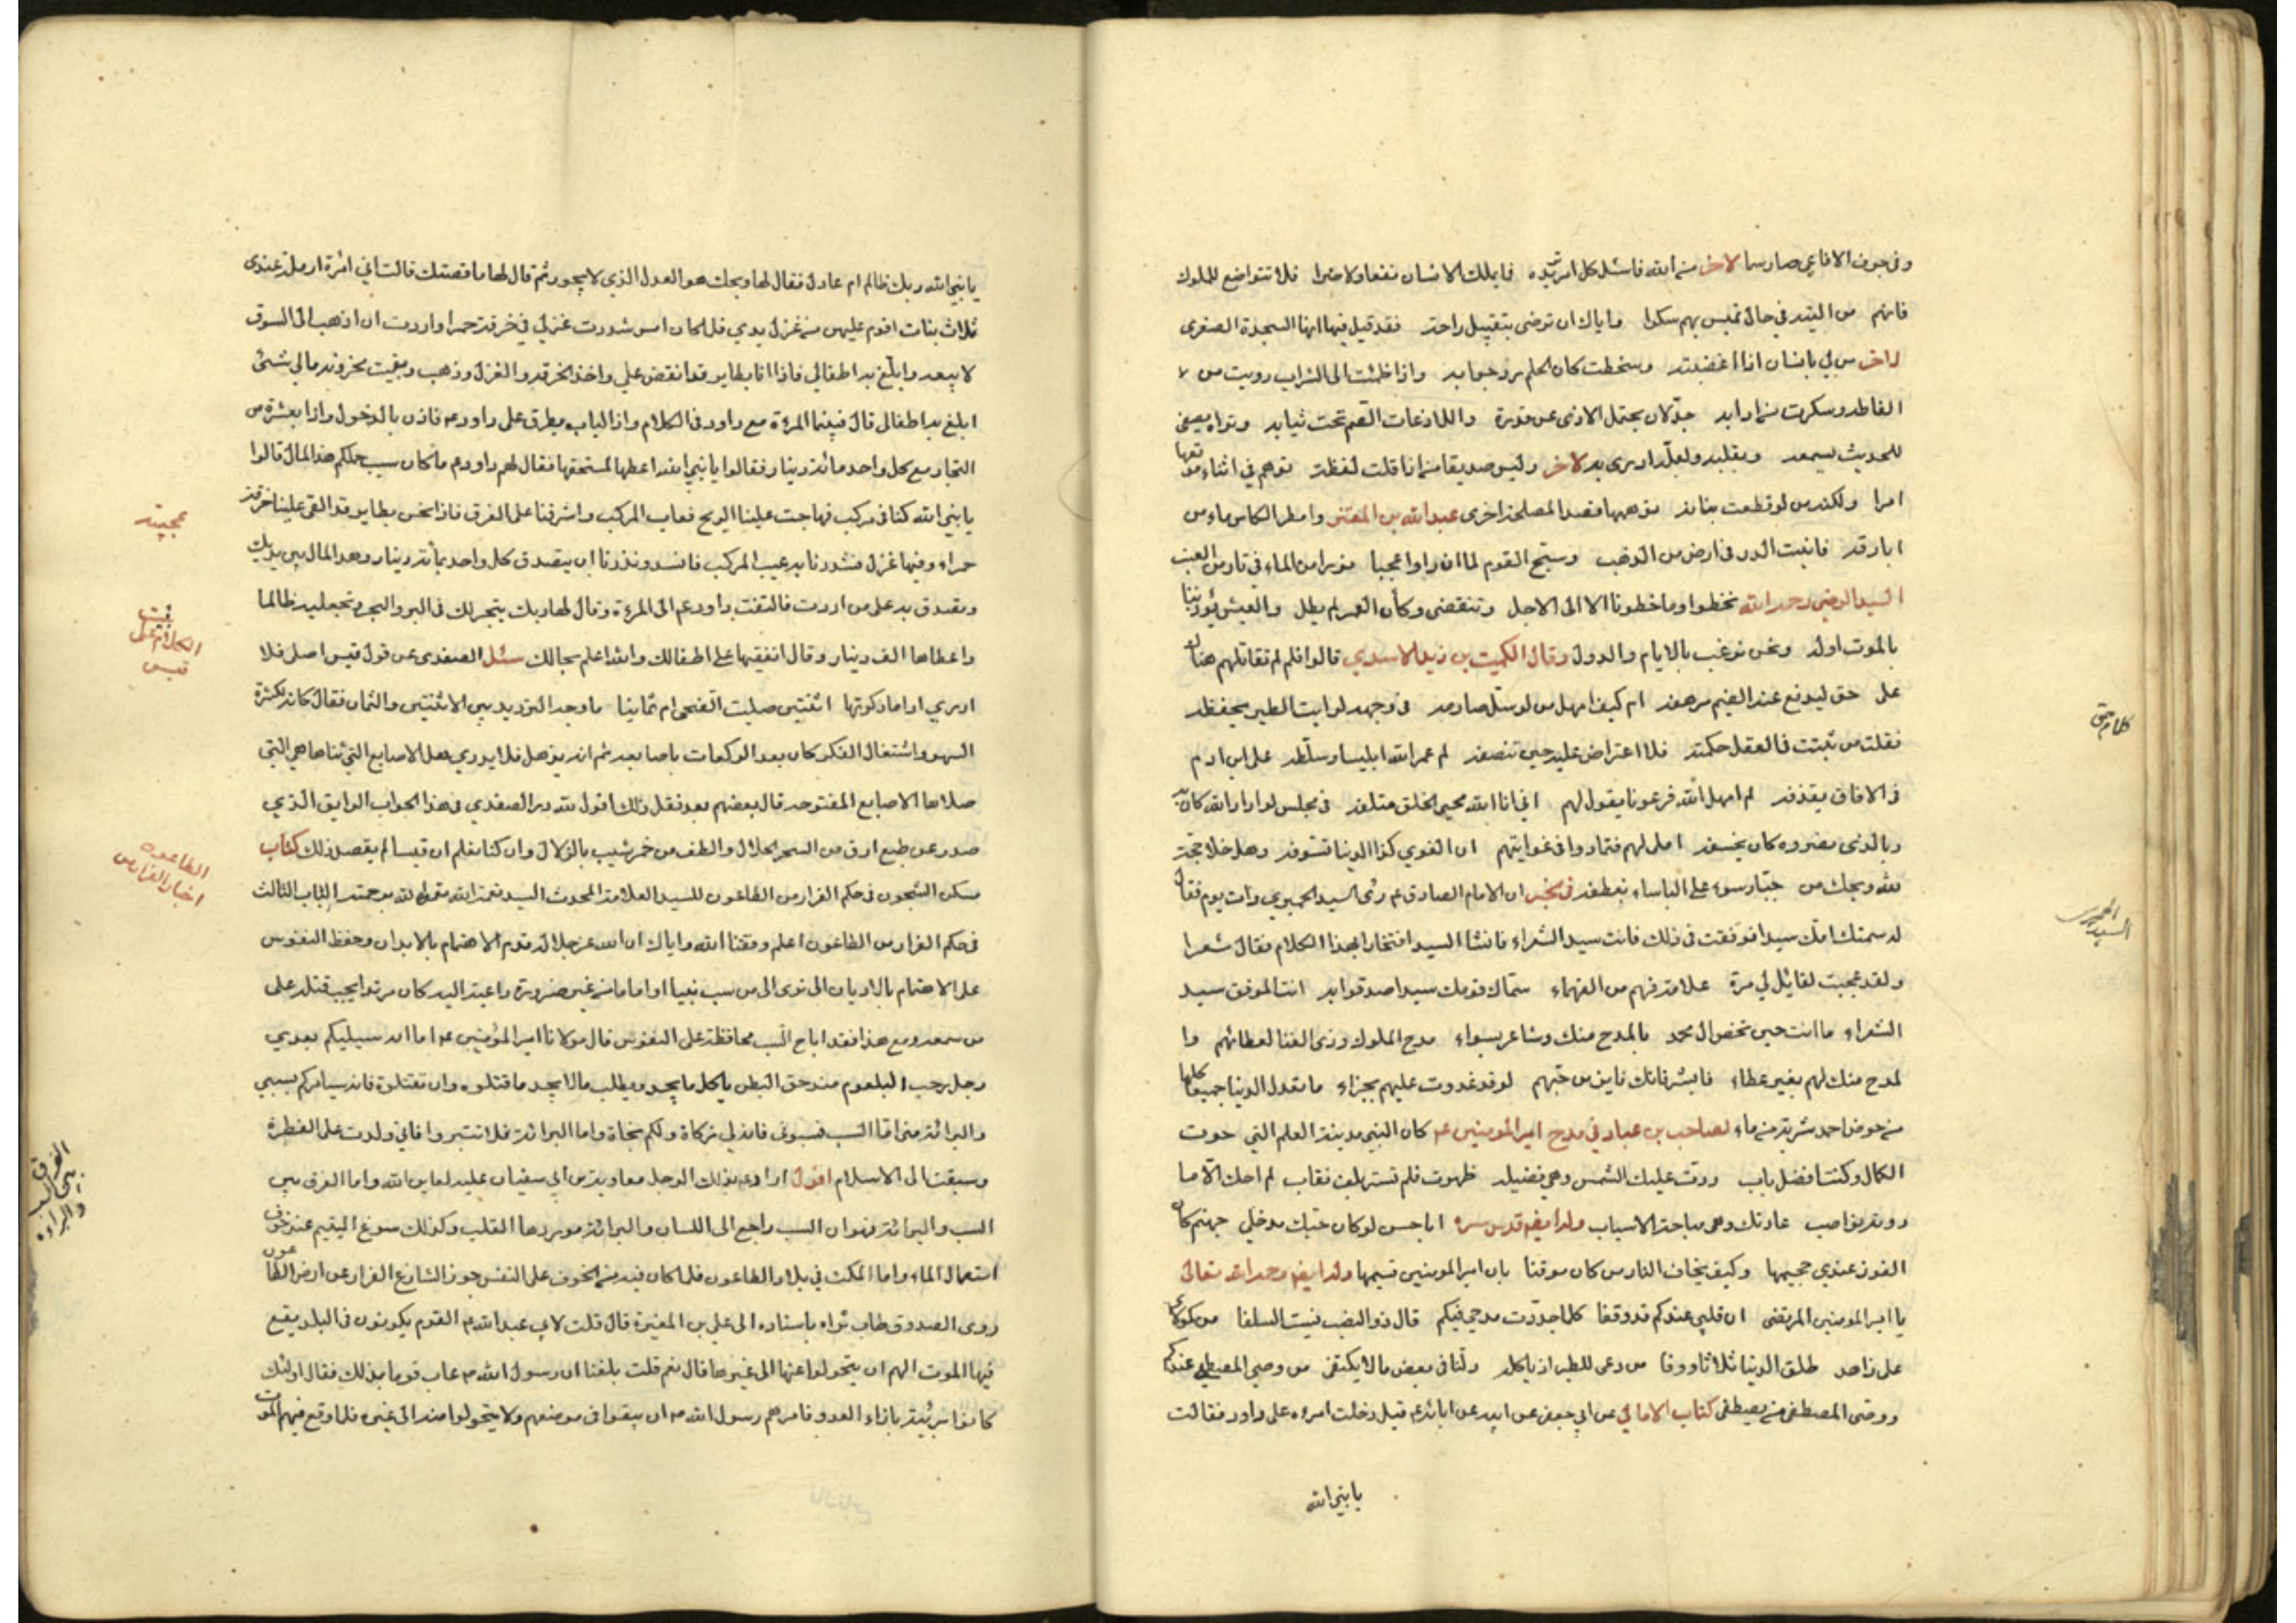 وفي جوف الافاعي صار سما لاخر من الله فاسئل كل امر تريده فما يملك الانسان نفعا ولا ضرا فلا تتواضع للملوك
فانهم من التيه في حال تميس بهم سكرا واياك ان ترضى بتقبيل راحة فقد قيل فيها انها السجدة الصغرى
لاخر من لي بانسان اذا اغضبته وسخطت كان الحلم رد جوابه واذا ظمئت الى الشراب رويت من
الفاظه وسكرت من ادابه جذلان يحتمل الاذى عن قدرة واللاذعات القصم تحت ثيابه وتراه يصغي
للحديث بسمعه وبقلبه ولعله ادرى به لاخر وليس صديقا من اذا قلت لفظة توهم في اثناء موقعها
امرا ولكنه من لو قطعت بنانه توهمها قصدا لمصلحة اخرى عبد الله بن المعتز وامطر الكاس ماء من
ابارقه فانبت الدر في ارض من الذهب وسبح القوم لما ان راوا عجبا نورا من الماء في نار من العنب
السيد الرضي رحمه الله نخطوا وما خطونا الا الى الاجل وتنقضي وكأن العمر لم يطل والعيش يؤذننا
بالموت اوله ونحن نرغب بالايام والدول وقال الكميت بن زيد الاسدي قالوا فلم لم تقاتلهم هناك
على حق ليدفع عند الضيم مرهفه ام كيف امهل من لو سل صارمه في وجهه لرايت الطير يخطفه
فقلت من ثبتت في العقل حكمته فلا اعتراض عليه حين تنصفه لم عمر الله ابليسا وسلطه على ابن ادم
في الافاق يقذفه لم امهل الله فرعونا يقول لهم اني انا الله محيي الخلق متلفه في مجلس لو اراد الله كان به
وبالذي نصروه كان يخسفه املى لهم فتمادوا في غوايتهم ان الغوي كذا الدنيا تسوفه وهل خلا حجة
لله ويحك من جبار سوء على الباساء يعطفه في الخبر ان الامام الصادق عم رئى السيد الحميري ذات يوم فقال
له سمتك امك سيدا فوفقت في ذلك فانت سيد الشعراء فانشأ السيد افتخارا بهذا الكلام فقال شعرا
ولقد عجبت لقائل لي مرة علامة فهم من الفهماء سماك قومك سيدا صدقوا به انت الموفق سيد
الشعراء ما انت حين تخص ال محمد بالمدح منك وشاعر بسواء مدح الملوك وذي الغنا لعطائهم وا
لمدح منك لهم بغير عطاء فابشر فانك فايز من حبهم لو قد غدوت عليهم بجزاء ما تعدل الدنيا جميعا كلها
من حوض احمد شربة من ماء لصاحب بن عباد في مدح امير المومنين عم كان النبي مدينة العلم التي حوت
الكمال وكنت افضل باب ردت عليك الشمس وهي فضيلة ظهرت فلم تستر بلف نقاب لم احك الا ما
روته نواصب عادتك وهي مباحة الاسباب وله ايضا قدس سره ابا حسن لو كان حبك مدخلي جهنم كان
الفوز عندي جحيمها وكيف يخاف النار من كان موقنا بان امير المومنين قسيمها وله ايضا رحمه الله تعالى
يا امير المومنين المرتضى ان قلبي عندكم قد وقفا كلما جددت مدحي فيكم قال ذو النصب نسيت السلفا من كمولاي
علي زاهد طلق الدنيا ثلاثا ووفا من دعي للطير اذ ياكله ولنا في بعض ما لا يكتفى من وصي المصطفى عندكم
ووصي المصطفى من يصطفى كتاب الامالي عن ابي جعفر عن ابيه عن ابائه عم قيل دخلت امرءة على داود فقالت
يا نبي الله
كلام حق
السيد الحميري
يا نبي الله ربك ظالم ام عادل فقال لها ويحك هو العدل الذي لا يجور ثم قال لها ما قصتك قالت اني امرئة ارملة عندي
ثلاث بنات اقوم عليهن من غزل يدي فلما كان امس شددت غزلي في خرقة حمرا واردت ان اذهب الى السوق
لابيعه وابلغ به اطفالي فاذا انا بطاير قد انقض علي واخذ الخرقة والغزل وذهب وبقيت محزونة مالي شئ
ابلغ به اطفالي قال فبينما المرءة مع داود في الكلام واذا الباب يطرق على داود عم فاذن بالدخول واذا بعشرة من
التجار مع كل واحد مائة دينار فقالوا يا نبي الله اعطها لمستحقها فقال لهم داود عم ما كان سبب حملكم هذا المال قالوا
يا نبي الله كنا في مركب فهاجت علينا الريح فعاب المركب واشرفنا على الغرق فاذا نحن بطاير قد القى علينا خرقة
حمراء وفيها غزل فشددنا به عيب المركب فانسد ونذرنا ان يتصدق كل واحد بمائة دينار وهذا المال بين يديك
وتصدق به على من اردت فالتفت داود عم الى المرءة وقال لها ربك يتجر لك في البر والبحر وتجعليه ظالما
واعطاها الف دينار وقال انفقيها على اطفالك والله اعلم بحالك سئل الصفدي عن قول قيس اصلي فلا
ادري اذا ما ذكرتها اثنتين صليت الضحى ام ثمانيا ما وجه الترديد بين الاثنتين والثمان فقال كانه لكثرة
السهو واشتغال الفكر كان يعد الركعات باصابعه ثم انه يذهل فلا يدري هل الاصابع التي ثناها هي التي
صلاها الاصابع المفتوحة قال بعضهم بعد نقل ذلك اقول لله در الصفدي في هذا الجواب الرايق الذي
صدر عن طبع ارق من السحر الحلال والطف من خمر شيب بالزلال وان كنا نعلم ان قيسا لم يقصد ذلك كتاب
مسكن الشجون في حكم الفرار من الطاعون للسيد العلامة المحدث السيد نعمة الله تغمده الله برحمته الباب الثالث
في حكم الفرار من الطاعون اعلم وفقنا الله واياك ان الله عز جلاله قدم الاهتمام بالابدان وحفظ النفوس
على الاهتمام بالاديان الى ترى الى من سب نبيا او اماما من غير ضرورة داعية اليه كان مرتدا يجب قتله على
من سمعه ومع هذا فقد اباح السب محافظة على النفوس قال مولانا امير المؤمنين عم اما انه سيليكم بعدي
رجل رحب البلعوم مندحق البطن ياكل ما يجد ويطلب ما لا يجد فاقتلوه ولن تقتلوه فانه سيامركم بسبي
والبرائة مني اما السب فسبوني فانه لي زكاة ولكم نجاة واما البرائة فلا تتبروا فاني ولدت على الفطرة
وسبقت الى الاسلام اقول اراد عم بذلك الرجل معاوية بن ابي سفيان عليه لعاين الله واما الفرق بين
السب والبرائة فهو ان السب راجع الى اللسان والبرائة موردها القلب وكذلك سوغ التيمم عند خوف
استعمال الماء واما المكث في بلاد الطاعون فلما كان فيه من الخوف على النفس جوز الشارع الفرار عن ارض الطاعون
روى الصدوق طاب ثراه باسناده الى علي بن المغيرة قال قلت لابي عبد الله عم القوم يكونون في البلد يقع
فيها الموت الهم ان يتحولوا عنها الى غيرها قال نعم قلت بلغنا ان رسول الله ص عاب قوما بذلك فقال اولئك
كانوا بريئة بازاء العدو فامرهم رسول الله ص ان يبقوا في موضعهم ولا يتحولوا منه الى غيره فلما وقع فيهم الموت
عجيبة
الكلام على
قيس
الطاعون
اخبار الفرار من
الفرق
بين السب
والبراءة